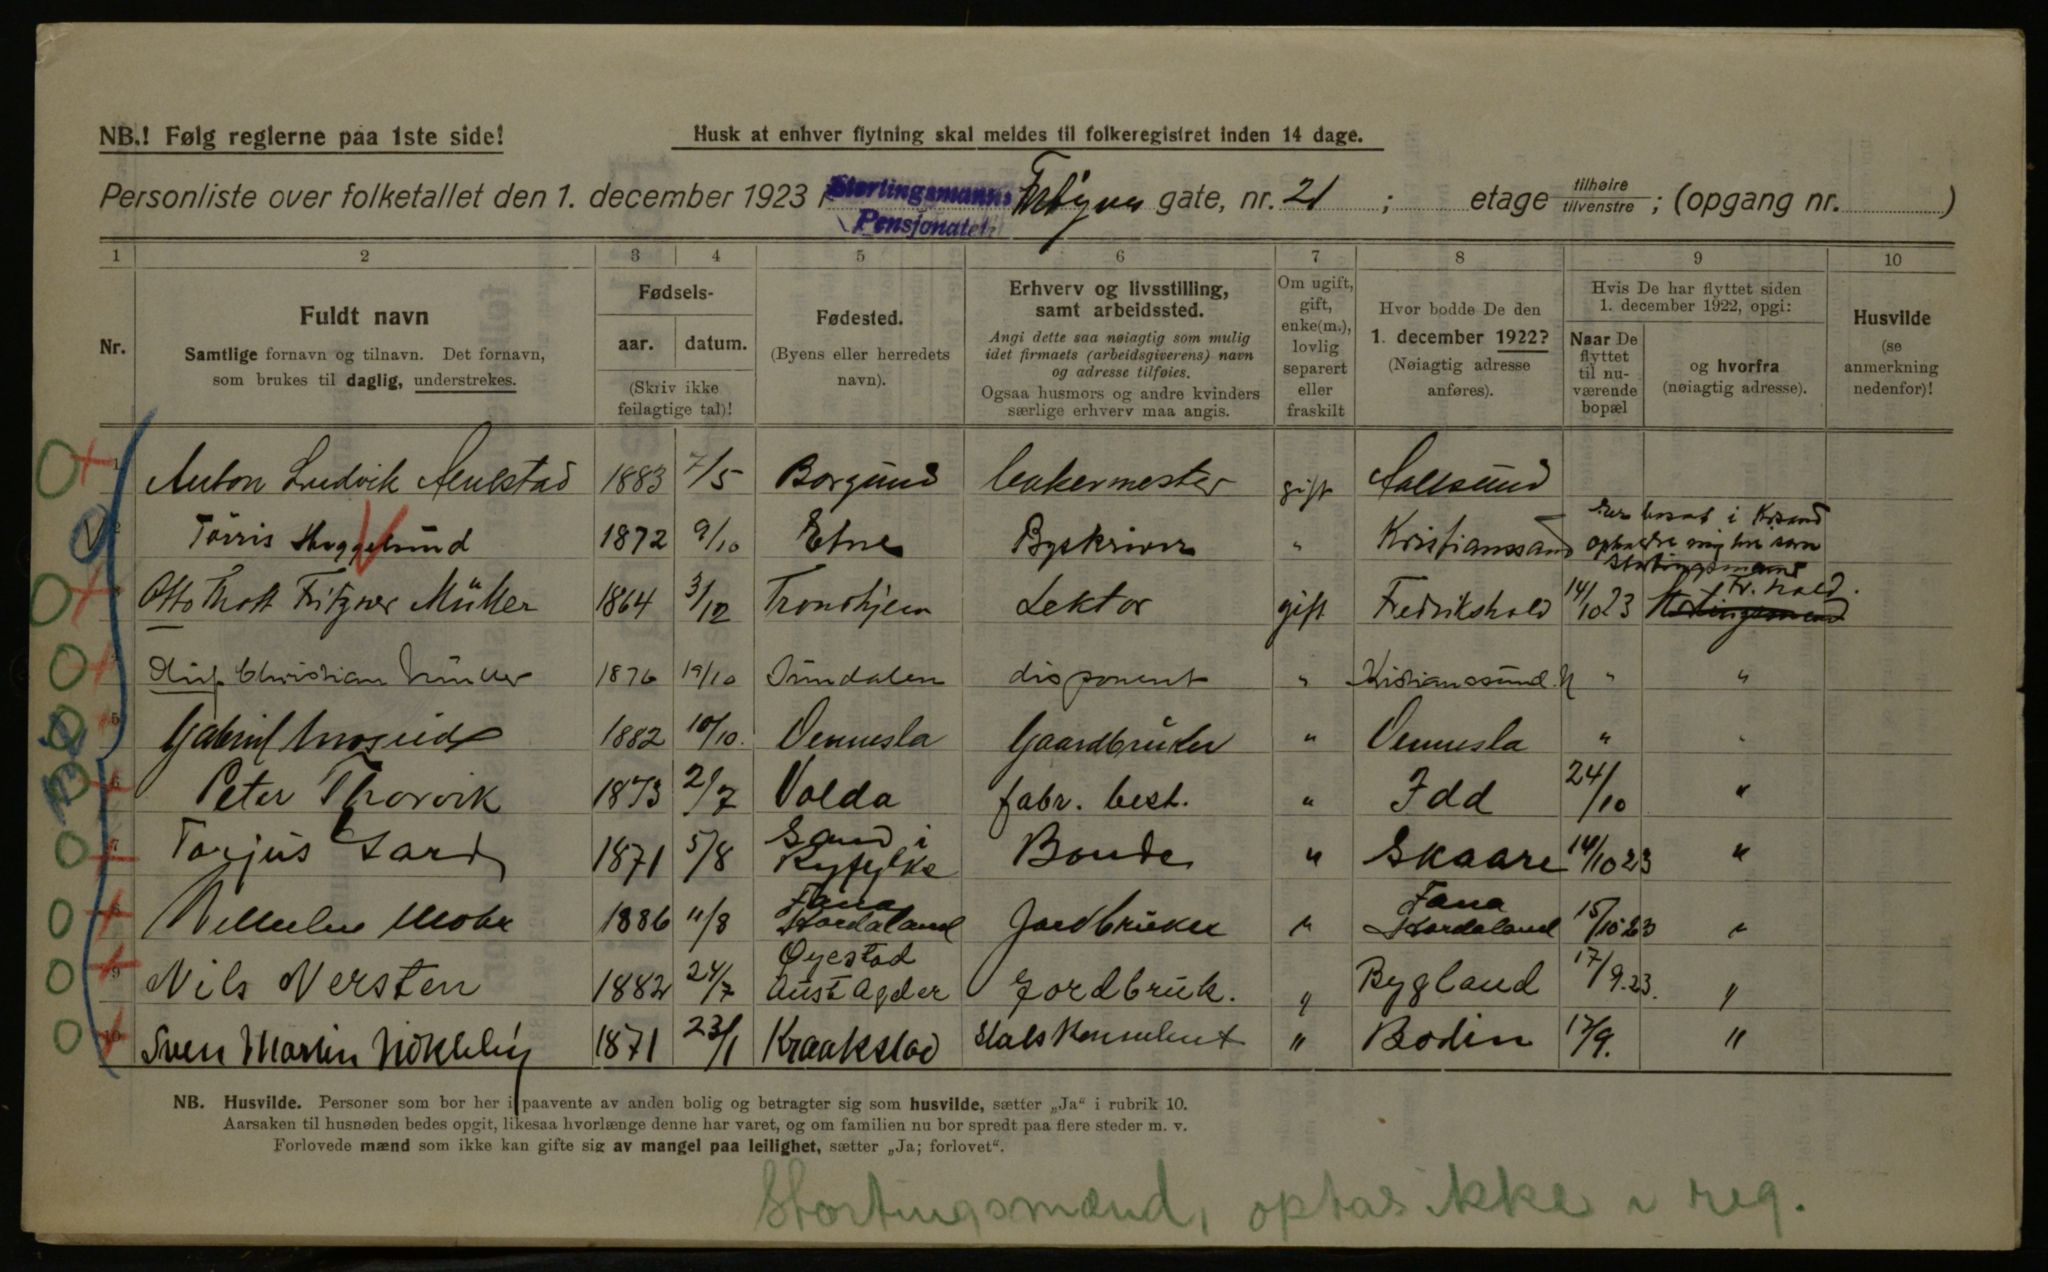 NB.! Følg reglerne paa 1ste side!
Husk at enhver flytning skal meldes til folkeregistret inden 14 dage.
Personliste over folketallet den 1. december 1923 i Stortingsmanns Pensjonatet gate, nr. 21 ; etage tilhøire tilvenstre ; (opgang nr. )
1 2 3 4 5 6 7 8 9 10
Nr.
Fuldt navn
Samtlige fornavn og tilnavn. Det fornavn,
som brukes til daglig, understrekes.
Fødsels-
aar. datum.
(Skriv ikke
feilagtige tal)!
Fødested.
(Byens eller herredets
navn).
Erhverv og livsstilling,
samt arbeidssted.
Angi dette saa nøiagtig som mulig
idet firmaets (arbeidsgiverens) navn
og adresse tilføies.
Ogsaa husmors og andre kvinders
særlige erhverv maa angis.
Om ugift,
gift,
enke(m.),
lovlig
separert
eller
fraskilt
Hvor bodde De den
1. december 1922?
(Nøiagtig adresse
anføres).
Hvis De har flyttet siden
1. december 1922, opgi:
Naar De
flyttet
til nu-
værende
bopæl
og hvorfra
(nøiagtig adresse).
Husvilde
(se
anmerkning
nedenfor)!
1 Anton Ludvik 1883 7/5 Borgund gift Aalesund
2 Tørris 1872 9/10 Etne Byskriver " Kristianssand
3 Otto Thott Fritzner Müller 1864 3/12 Trondhjem Lektor gift Fredrikshald 14/10 23 Fr.hald.
4 Christian Müller 1876 19/10 Sundalen disponent " Kristianssund N " "
5 Gabriel Moseid 1882 10/10. Vennesla Gaardbruker " Vennesla " "
6 Peter Thorvik 1873 2/7 Volda fabr. best. " Idd 24/10 "
7 Torjus Gard 1871 5/8 Sand i Ryfylke Bonde " Skaare 14/10 23 "
8 Mohr 1886 11/8 Fana Hordaland Jordbruker " Fana Hordaland 15/10 23 "
9 Nils Nersten 1882 24/7 Øyestad Aust Agder Jordbruk. " Bygland 17/9.23. "
10 Sven Martin Nökleby 1871 23/1 Kraakstad Statskonsulent " Bodin 17/9. "
NB. Husvilde. Personer som bor her i paavente av anden bolig og betragter sig som husvilde, sætter „Ja“ i rubrik 10.
Aarsaken til husnøden bedes opgit, likesaa hvorlænge denne har varet, og om familien nu bor spredt paa flere steder m. v.
Forlovede mænd som ikke kan gifte sig av mangel paa leilighet, sætter „Ja; forlovet“.
Stortingsmænd, optas ikke i reg.